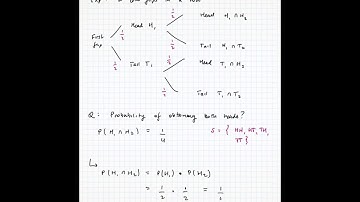 1/2 Head H₁ ∩ H₂
1/2 Head H₁
First
flip
1/2 Tail H₁ ∩ T₂
1/2 Tail T₁
1/2 Head T₁ ∩ H₂
1/2 Tail T₁ ∩ T₂
Q: Probability of obtaining both heads?
P(H₁ ∩ H₂) = 1/4 S = { HH, HT, TH,
TT }
↳
P(H₁ ∩ H₂) = P(H₁) • P(H₂)
= 1/2 • 1/2 =